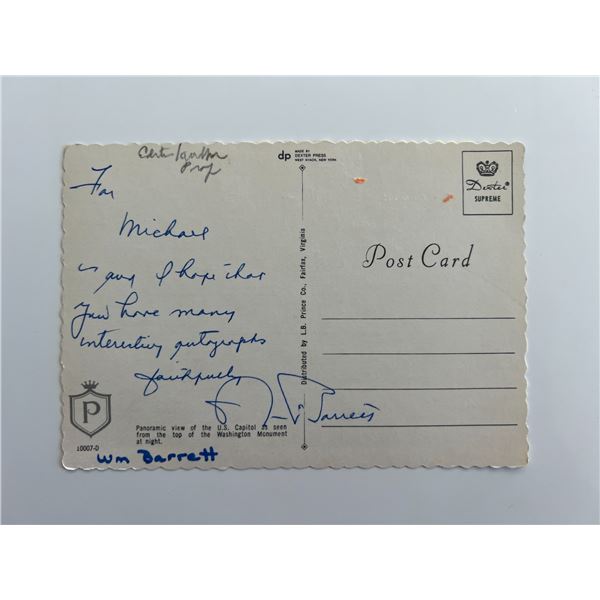 dp
MADE BY
DEXTER PRESS
WEST NYACK, NEW YORK
Dexter®
SUPREME
For
Michael
and I hope that
you have many
interesting autographs
faithfully
Barrett
Post Card
Distributed by L.B. Prince Co., Fairfax, Virginia
P
10007-D
Panoramic view of the U.S. Capitol as seen
from the top of the Washington Monument
at night.
Wm Barrett